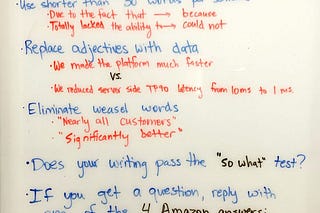 Use shorter than 30 words per
· Due to the fact that → because
· Totally lacked the ability to → could not
· Replace adjectives with data
· We made the platform much faster
vs.
· We reduced server side TP90 latency from 10ms to 1ms.
· Eliminate weasel words
· "Nearly all customers"
· "Significantly better"
· Does your writing pass the "so what" test?
· If you get a question, reply with
of the 4 Amazon answers: